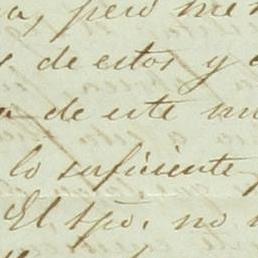 pero me
de estos y
de este
lo suficiente
El tpo. no